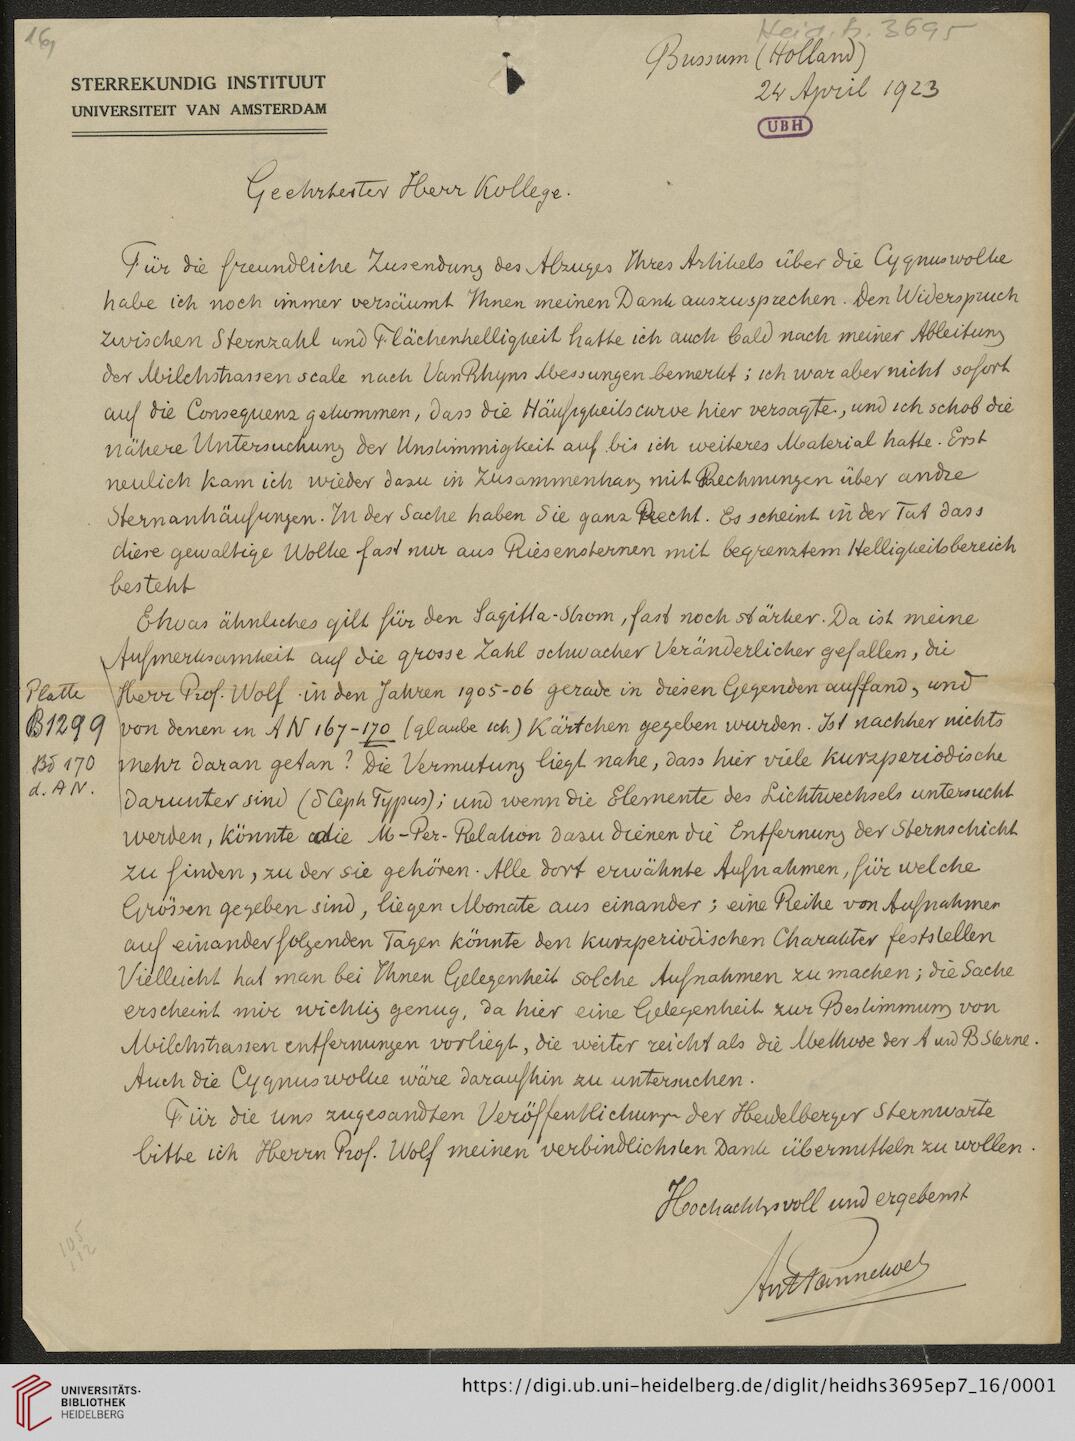 16
Heid. h. 3695
STERREKUNDIG INSTITUUT
UNIVERSITEIT VAN AMSTERDAM
Bussum (Holland)
24 April 1923
UBH
Geehrtester Herr Kollege.
Für die freundliche Zusendung des Abzuges Ihres Artikels über die Cygnuswolke
habe ich noch immer versäumt Ihnen meinen Dank auszusprechen. Den Widerspruch
zwischen Sternzahl und Flächenhelligkeit hatte ich auch bald nach meiner Ableitung
der Milchstrassenscale nach Van Rhyns Messungen bemerkt; ich war aber nicht sofort
auf die Consequenz gekommen, dass die Häufigkeitscurve hier versagte, und ich schob die
nähere Untersuchung der Unstimmigkeit auf bis ich weiteres Material hatte. Erst
neulich kam ich wieder dazu in Zusammenhang mit Rechnungen über andre
Sternanhäufungen. In der Sache haben Sie ganz Recht. Es scheint in der Tat dass
diese gewaltige Wolke fast nur aus Riesensternen mit begrenztem Helligkeitsbereich
besteht
Etwas ähnliches gilt für den Sagitta-Strom, fast noch stärker. Da ist meine
Aufmerksamkeit auf die grosse Zahl schwacher Veränderlicher gefallen, die
Herr Prof. Wolf in den Jahren 1905-06 gerade in diesen Gegenden auffand, und
von denen in AN 167-170 (glaube ich) Kärtchen gegeben wurden. Ist nachher nichts
mehr daran getan? Die Vermutung liegt nahe, dass hier viele kurzperiodische
darunter sind (δ Ceph Typus); und wenn die Elemente des Lichtwechsels untersucht
werden, könnte die M-Per-Relation dazu dienen die Entfernung der Sternschicht
zu finden, zu der sie gehören. Alle dort erwähnte Aufnahmen, für welche
Grössen gegeben sind, liegen Monate aus einander; eine Reihe von Aufnahmen
auf einander folgenden Tagen könnte den kurzperiodischen Charakter feststellen
Vielleicht hat man bei Ihnen Gelegenheit solche Aufnahmen zu machen; die Sache
erscheint mir wichtig genug, da hier eine Gelegenheit zur Bestimmung von
Milchstrassenentfernungen vorliegt, die weiter reicht als die Methode der A und B Sterne.
Auch die Cygnuswolke wäre daraufhin zu untersuchen.
Für die uns zugesandten Veröffentlichungen der Heidelberger Sternwarte
bitte ich Herrn Prof. Wolf meinen verbindlichsten Dank übermitteln zu wollen.
Hochachtsvoll und ergebenst
Ant Pannekoek
Platte
B1299
Bd 170
d. AN.
105
112
UNIVERSITÄTS-
BIBLIOTHEK
HEIDELBERG
https://digi.ub.uni-heidelberg.de/diglit/heidhs3695ep7_16/0001